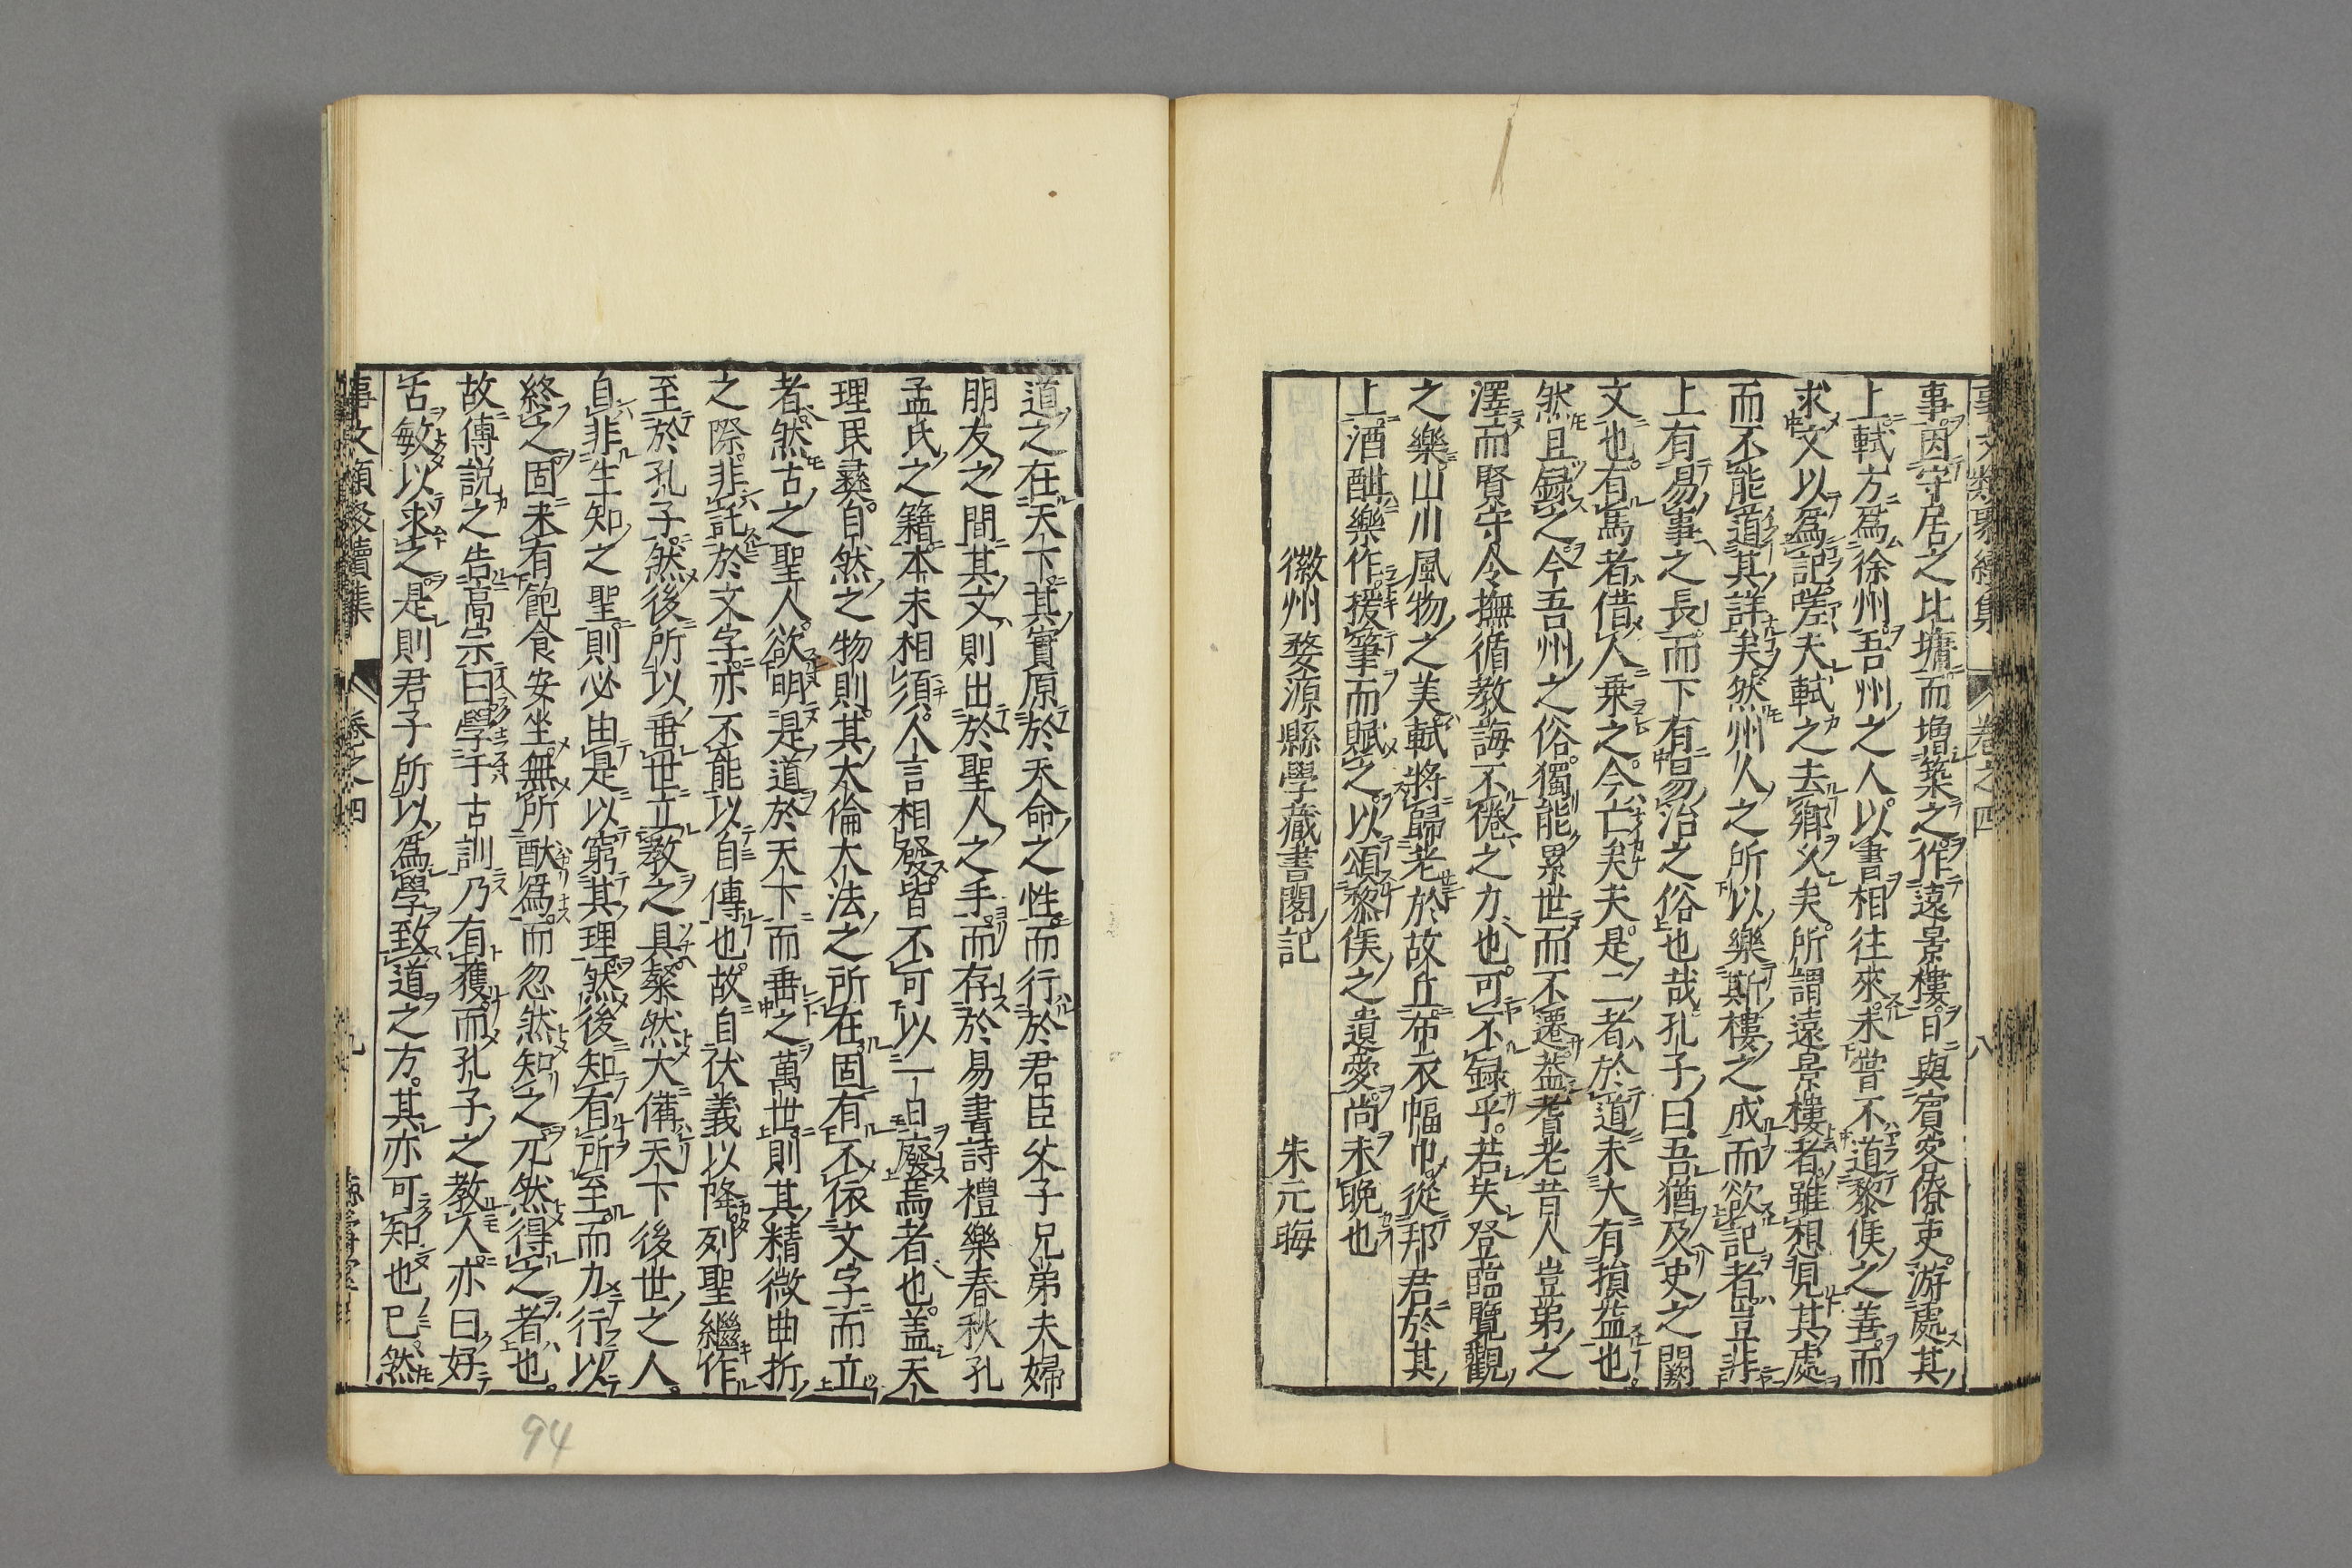 事文類聚續集 卷之四 八
事因守居之北墉而增築之作遠景樓日與賓客僚吏游處其
上軾方爲徐州吾州之人以書相往來未嘗不道黎侯之善而
求文以爲記嗟夫軾之去鄉乆矣所謂遠景樓者雖想見其處
而不能道其詳矣然州人之所以樂斯樓之成而欲記者豈非
上有易事之長而下有易治之俗也哉孔子曰吾猶及史之闕
文也有馬者借人乗之今亡矣夫是二者於道未大有損益也
然且録之今吾州之俗獨能累世而不遷蓋耆老昔人豈弟之
澤而賢守令撫循教誨不倦之力也可不録乎若夫登臨覽觀
之樂山川風物之美軾將歸老於故丘布衣幅巾從邦君於其
上酒酣樂作援筆而賦之以頌黎侯之遺愛尚未晚也
徽州婺源縣學藏書閣記 朱元晦
道之在天下其實原於天命之性而行於君臣父子兄弟夫婦
朋友之間其文則出於聖人之手而存於易書詩禮樂春秋孔
孟氏之籍本末相須人言相發皆不可以一日廢焉者也蓋天
理民彝自然之物則其大倫大法之所在固有不依文字而立
者然古之聖人欲明是道於天下而垂之萬世則其精微曲折
之際非託於文字亦不能以自傳也故自伏義以降列聖繼作
至於孔子然後所以垂世立教之具粲然大備天下後世之人
自非生知之聖則必由是以窮其理然後知有所至而力行以
終之固未有飽食安坐無所猷爲而忽然知之兀然得之者也
故傳說之告高宗曰學于古訓乃有獲而孔子之教人亦曰好
古敏以求之是則君子所以爲學致道之方其亦可知也已然
事文類聚續集 卷之四 九